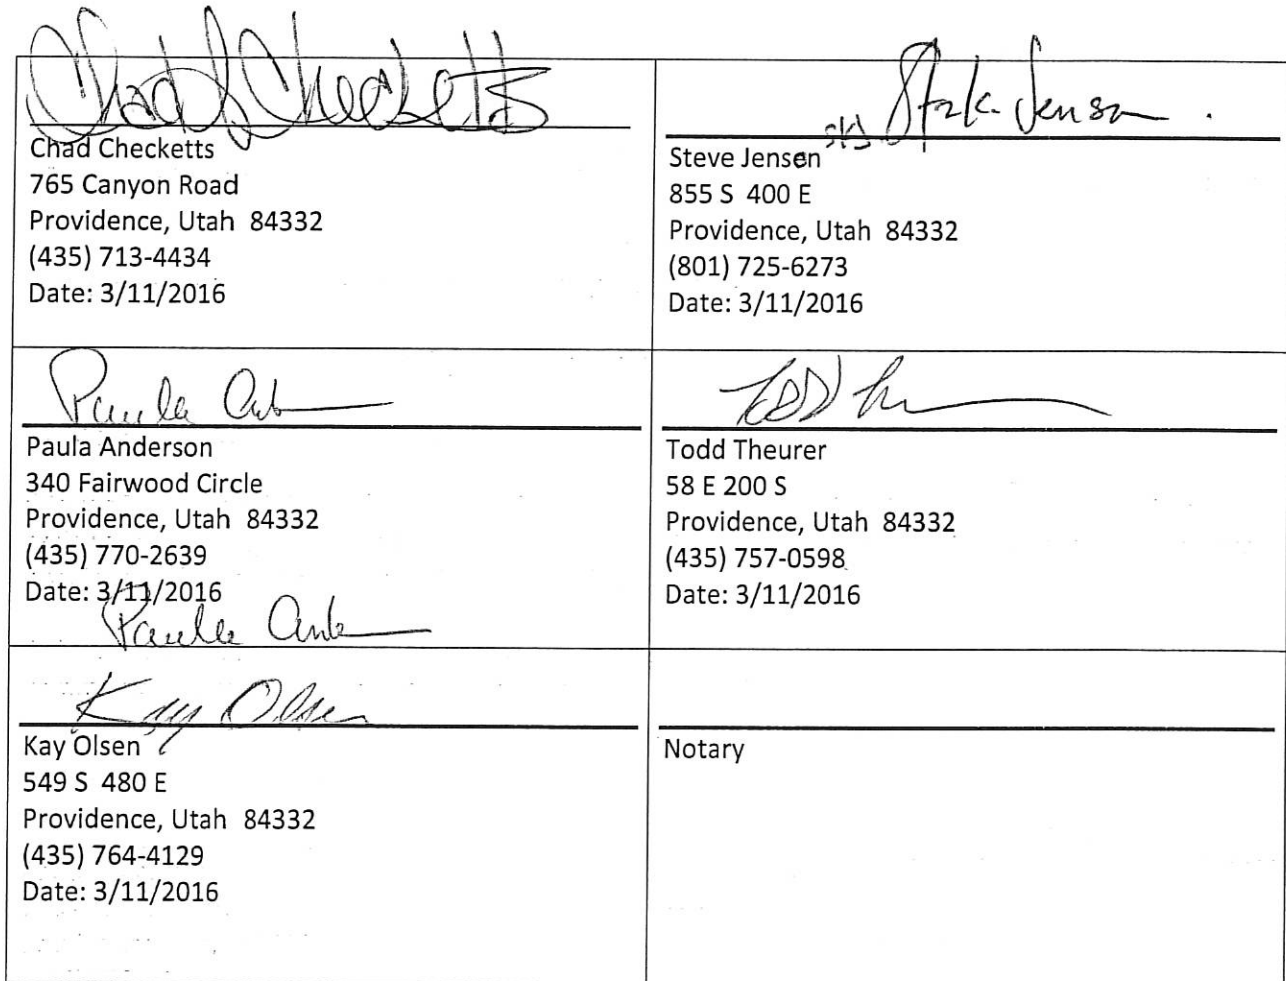 Chad J Checketts
Chad Checketts
765 Canyon Road
Providence, Utah 84332
(435) 713-4434
Date: 3/11/2016
Jenson
Steve Jensen
855 S 400 E
Providence, Utah 84332
(801) 725-6273
Date: 3/11/2016
Paula
Paula Anderson
340 Fairwood Circle
Providence, Utah 84332
(435) 770-2639
Date: 3/11/2016
Paula
Todd
Todd Theurer
58 E 200 S
Providence, Utah 84332
(435) 757-0598
Date: 3/11/2016
Kay Olsen
Kay Olsen
549 S 480 E
Providence, Utah 84332
(435) 764-4129
Date: 3/11/2016
Notary